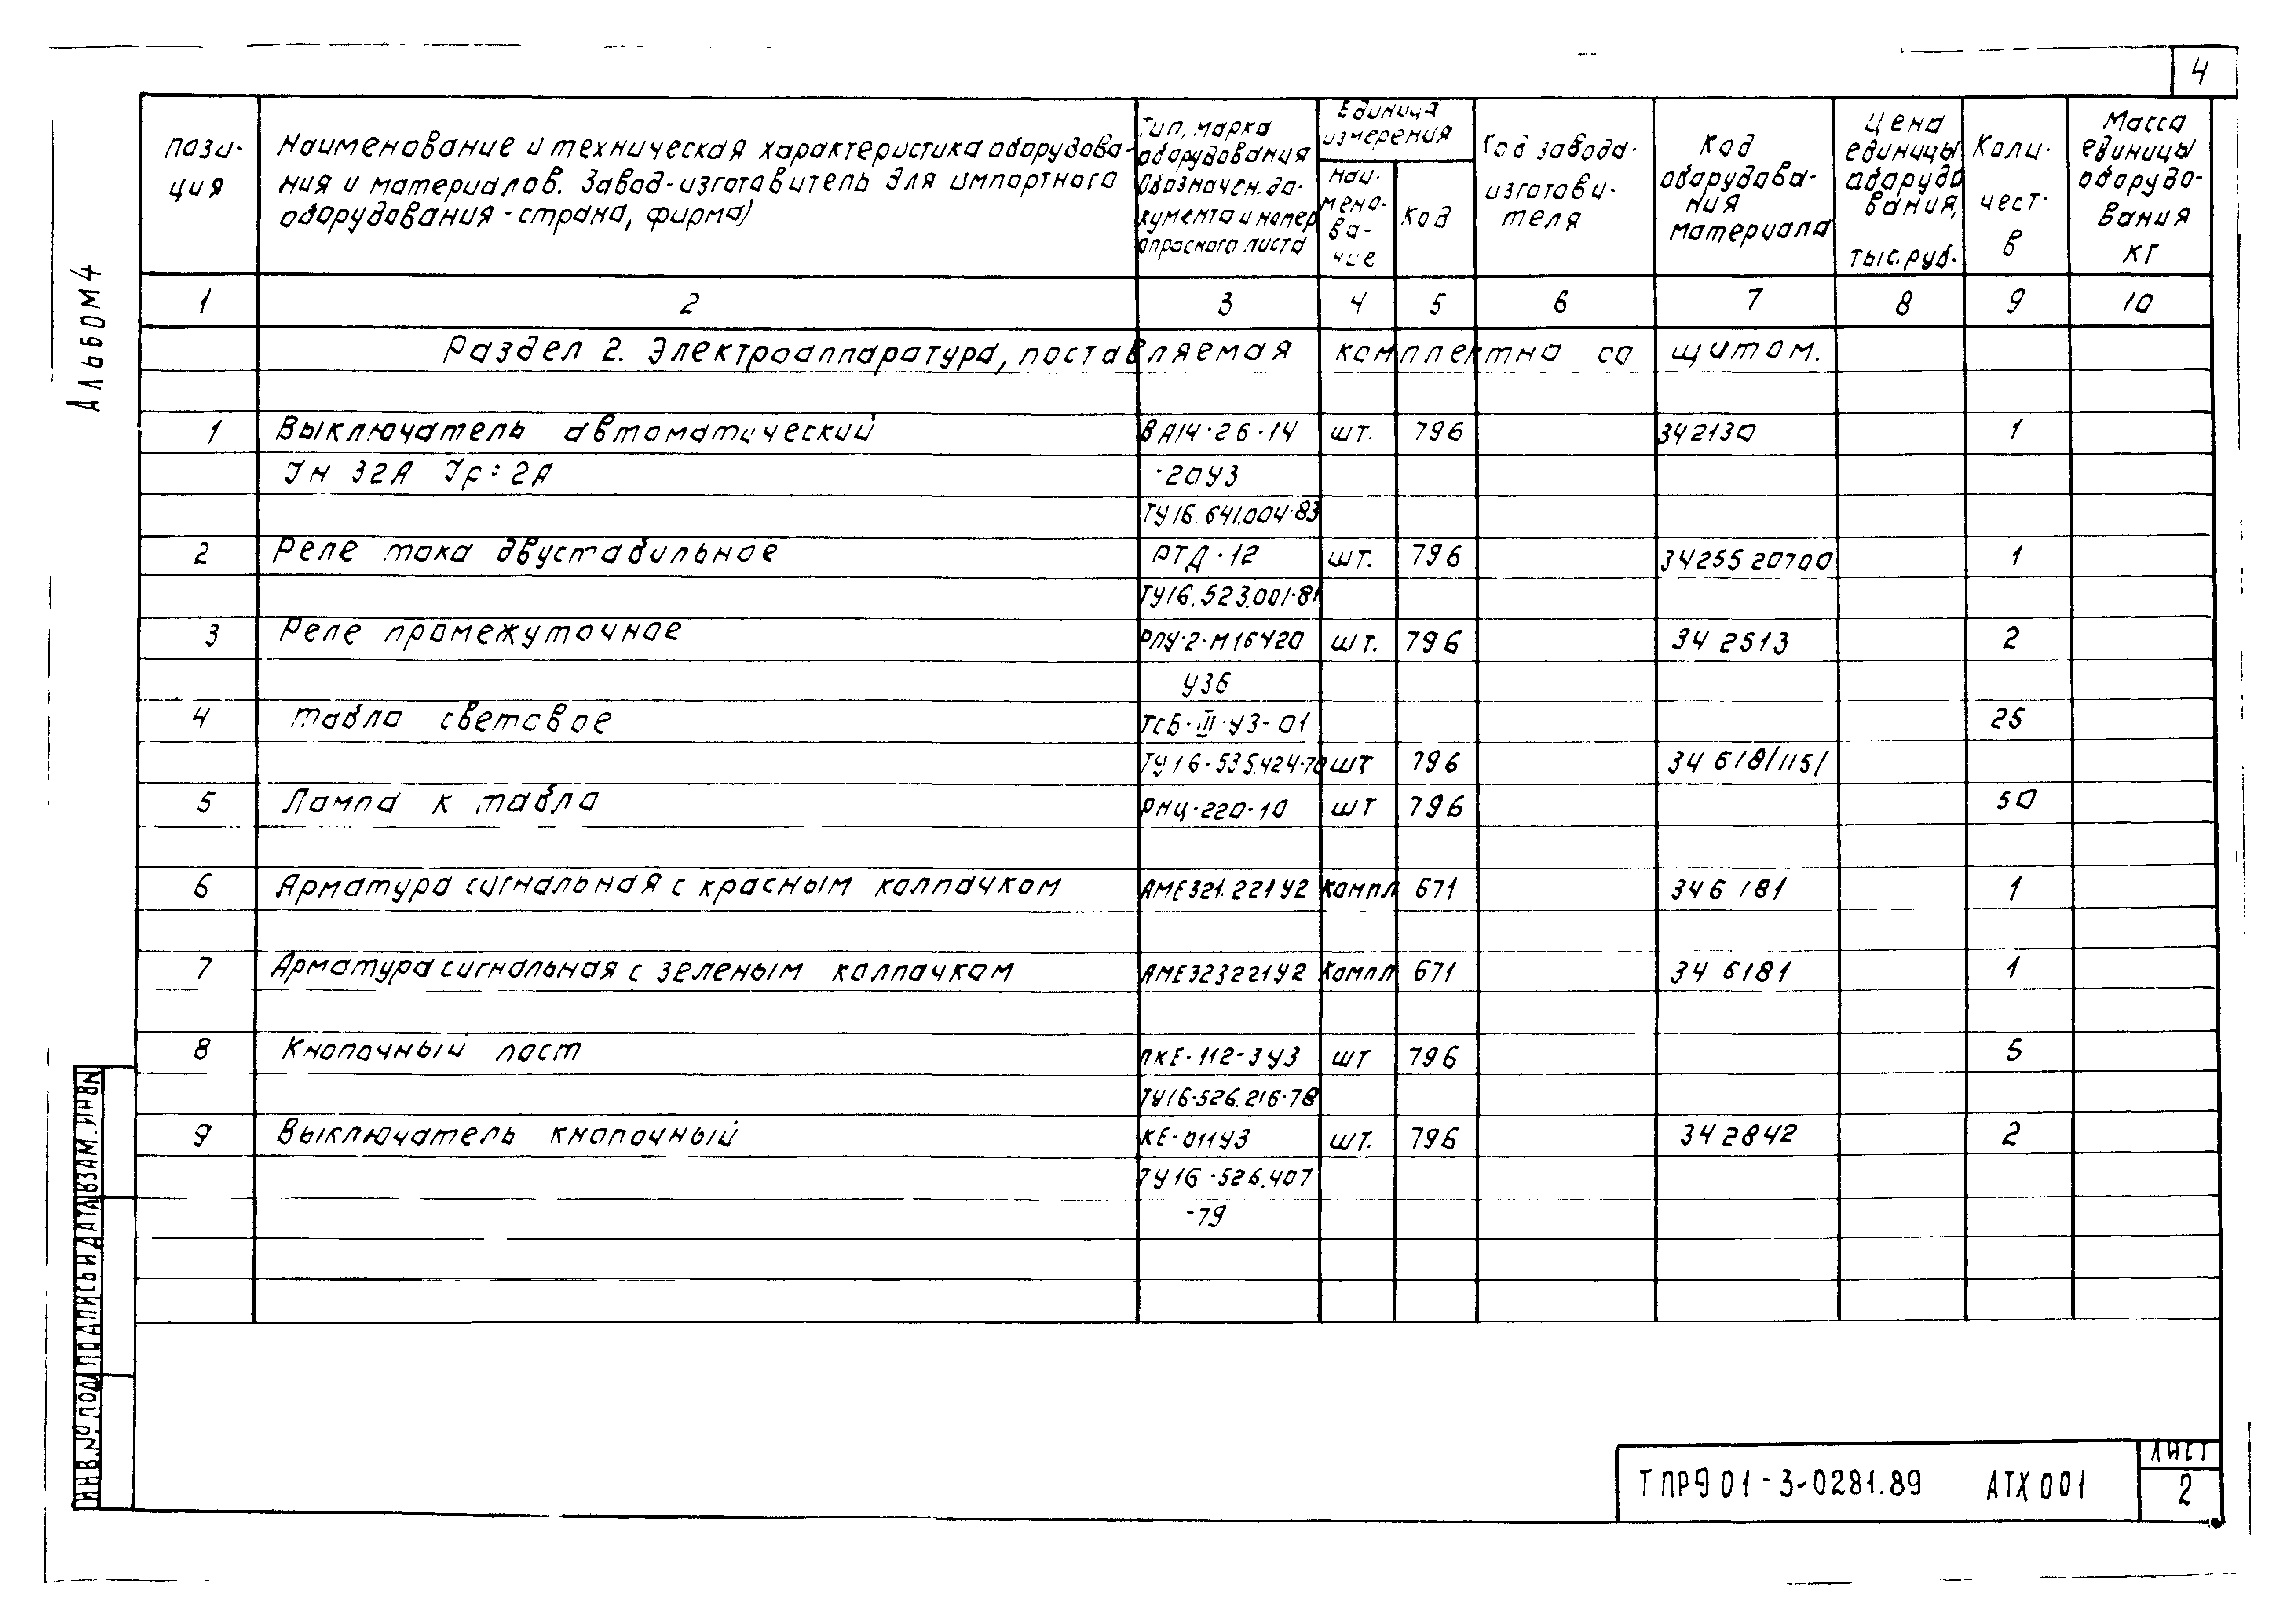 4
Альбом 4
пози-
ция
Наименование и техническая характеристика оборудова-
ния и материалов. Завод-изготовитель для импортного
оборудования - страна, фирма)
Тип, марка
оборудования
Обозначен. до-
кумента и номер
опросного листа
Единица
измерения
наи-
мено-
ва-
ние
код
Код завода-
изготови-
теля
Код
оборудова-
ния
материала
Цена
единицы
оборудо
вания,
тыс.руб.
Коли-
чест-
в
Масса
единицы
оборудо-
вания
кг
1 2 3 4 5 6 7 8 9 10
Раздел 2. Электроаппаратура, поставляемая комплектно со щитом.
1 Выключатель автоматический ВА14-26-14 шт. 796 342130 1
Iн 32А Iр=2А -20У3
ТУ16.641.004-83
2 Реле тока двустабильное РТД-12 шт. 796 3425520700 1
ТУ16.523.001-81
3 Реле промежуточное РПУ-2-М16420 шт. 796 34 2513 2
У3б
4 табло световое ТСБ-III-У3-01 25
ТУ16-535.424-70 шт 796 34 618/115/
5 Лампа к табло РНЦ-220-10 шт 796 50
6 Арматура сигнальная с красным колпачком АМЕ321.221У2 Компл 671 346 181 1
7 Арматура сигнальная с зеленым колпачком АМЕ323221У2 Компл 671 34 6181 1
8 Кнопочный пост ПКЕ-112-3У3 шт 796 5
ТУ16-526.216-78
9 Выключатель кнопочный КЕ-011У3 шт. 796 34 2842 2
ТУ16-526.407
-79
ИНВ.№ ПОДЛ ПОДПИСЬ И ДАТА ВЗАМ.ИНВ№
ТПР901-3-0281.89 АТХ001
ЛИСТ
2